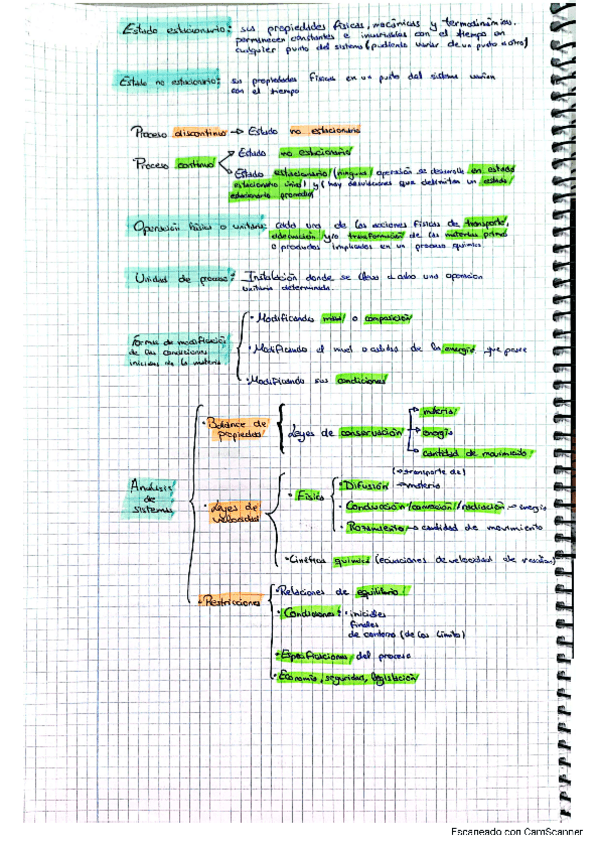 Estado estacionario: sus propiedades físicas, mecánicas y termodinámicas.
permanecen constantes e invariables con el tiempo en
cualquier punto del sistema (pudiendo variar de un punto a otro)
Estado no estacionario: sus propiedades físicas en un punto del sistema varían
con el tiempo
Proceso discontinuo → Estado no estacionario
Proceso continuo
Estado no estacionario
Estado estacionario (ninguna operación se desarrolla en estado
estacionario único) y (hay desviaciones que delimitan un estado
estacionario promedio)
Operación física o unitaria: cada una de las acciones físicas de transporte,
adecuación y/o transformación de las materias primas
o productos implicados en un proceso químico.
Unidad de proceso: Instalación donde se lleva a cabo una operación
unitaria determinada.
Formas de modificación
de las condiciones
iniciales de la materia:
• Modificando masa o composición
• Modificando el nivel o calidad de la energía que posee
• Modificando sus condiciones
Análisis
de
sistemas
• Balance de
propiedad
Leyes de conservación
materia
energía
cantidad de movimiento
• Leyes de
velocidad
• Física
(→ transporte de)
• Difusión → materia
• Conducción/convección/radiación → energía
• Rozamiento → cantidad de movimiento
• Cinética química (ecuaciones de velocidad de reacción)
• Restricciones
• Relaciones de equilibrio
• Condiciones: • iniciales
finales
de contorno (de los límites)
• Especificaciones del proceso
• Economía, seguridad, legislación
Escaneado con CamScanner